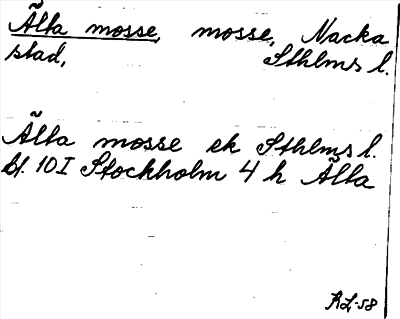 Älta mosse, mosse, Nacka
stad, Sthlms l.
Älta mosse ek Sthlms l.
bl. 10I Stockholm 4 h Älta
RL-58